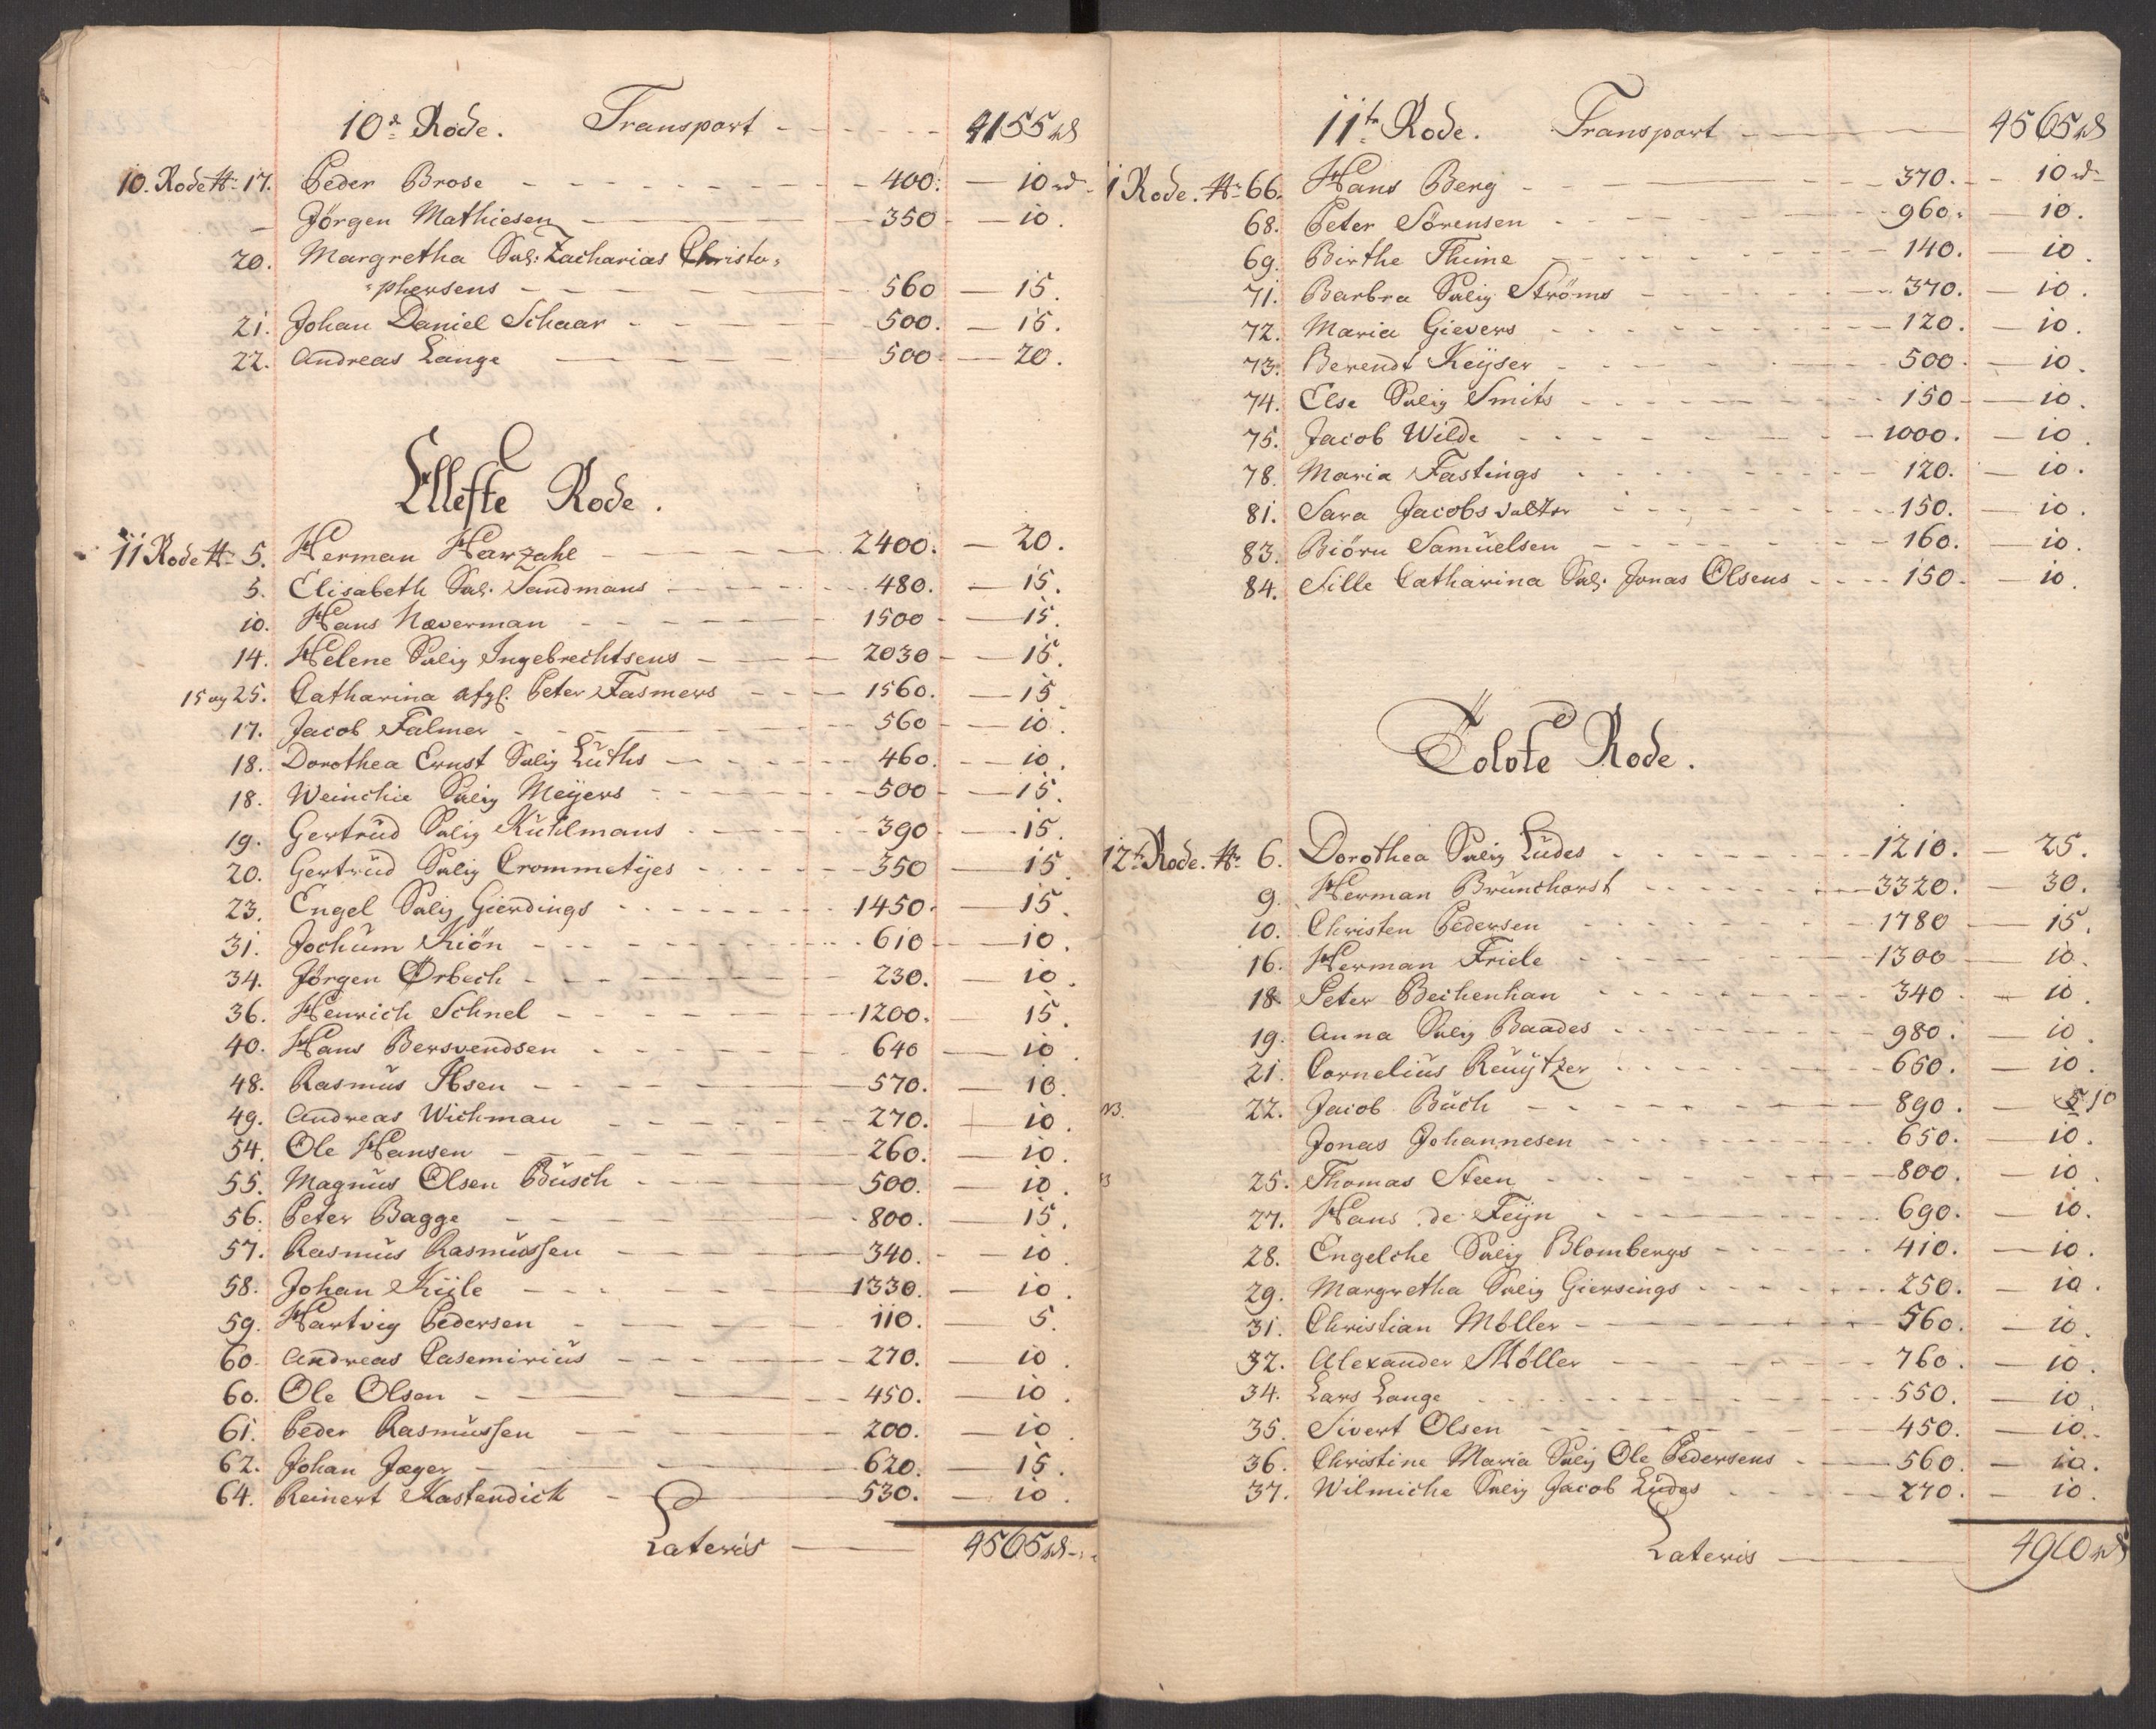 10de Rode. Transport - - - 4155 rd
10. Rode No 17. Peder Brose - - - 400. - 10 rd
- Jörgen Mathiesen - 350 - 10.
20. Margretha Sal: Zacharias Christo-
phersens - 560 - 15.
21. Johan Daniel Schaar - 500. - 15.
22. Andreas Lange - 500 - 20.
Ellefte Rode.
11 Rode No 5. Herman Harzahl - 2400. - 20.
5. Elisabeth Sal. Sandmans - 480. - 15.
10. Hans Næverman - 1500 - 15.
14. Helene Salig Ingebrechtsens - 2030 - 15.
15 og 25. Catharina afgl. Peter Fasmers - 1560. - 15
17. Jacob Falmer - 560 - 10.
18. Dorothea Ernst Salig Lüths - 460. - 10.
18. Weinchie Salig Meÿers - 500 - 15.
19. Gertrüd Salig Kühlmans - 390 - 15.
20. Gertrüd Salig Crommetÿes - 350 - 15.
23. Engel Salig Gierdings - 1450. - 15.
31. Jochüm Kiön - 610 - 10.
34. Jørgen Ørbech - 230. - 10.
36. Henrich Schnel - 1200. - 15.
40. Hans Bersvendsen - 640 - 10.
48. Rasmüs Ibsen - 570. - 10.
49. Andreas Wichman - 270. - 10.
54. Ole Hansen - 260. - 10.
55. Magnüs Olsen Büsch - 500. - 10.
56. Peter Bagge - 800. - 15.
57. Rasmüs Rasmüssen - 340. - 10
58. Johan Kÿle - 1330. - 10.
59. Hartvig Pedersen - 110. - 5.
60. Andreas Casemiriüs - 270. - 10.
60. Ole Olsen - 450. - 10.
61. Peder Rasmüssen - 200. - 10
62. Johan Jæger - 620. - 15.
64. Reinert Kastendick - 530. - 10.
Lateris - 4565 rd
11te Rode. Transport - 4565 rd
11 Rode. No 66. Hans Berg - 370. - 10 rd
68. Peter Sörensen - 960. - 10.
69. Birthe Thime - 140. - 10.
71. Barbra Salig Ströms - 370. - 10.
72. Maria Gievers - 120. - 10.
73. Berendt Keÿser - 500 - 10.
74. Else Salig Smits - 150 - 10.
75. Jacob Wilde - 1000. - 10.
78. Maria Fastings - 120. - 10.
81. Sara Jacobsdatter - 150. - 10.
83. Biörn Samüelsen - 160. - 10.
84. Sille Catharina Sal. Jonas Olsens - 150. - 10.
Tolvte Rode.
12te Rode. No 6. Dorothea Salig Lüdes - 1210. - 25.
9. Herman Brünchorst - 3320. - 30.
10. Christen Pedersen - 1780 - 15.
16. Herman Friele - 1300 - 10.
18. Peter Bechenhan - 340 - 10.
19. Anna Salig Baades - 980. - 10.
21. Cornelius Reüÿtzer - 650. - 10.
NB. 22. Jacob Büch - 890. - 10
Jonas Johannesen - 650. - 10.
25. Thomas Steen - 800. - 10.
27. Hans de Feÿn - 690. - 10.
28. Engelche Salig Blombergs - 410. - 10.
29. Margretha Salig Giersings - 250. - 10.
31. Christian Möller - 560. - 10.
32. Alexander Møller - 760. - 10.
34. Lars Lange - 550. - 10.
35. Sivert Olsen - 450. - 10.
36. Christine Maria Salig Ole Pedersens - 560. - 10.
37. Wilmiche Salig Jacob Lüdes - 270. - 10.
Lateris - 4960 rd